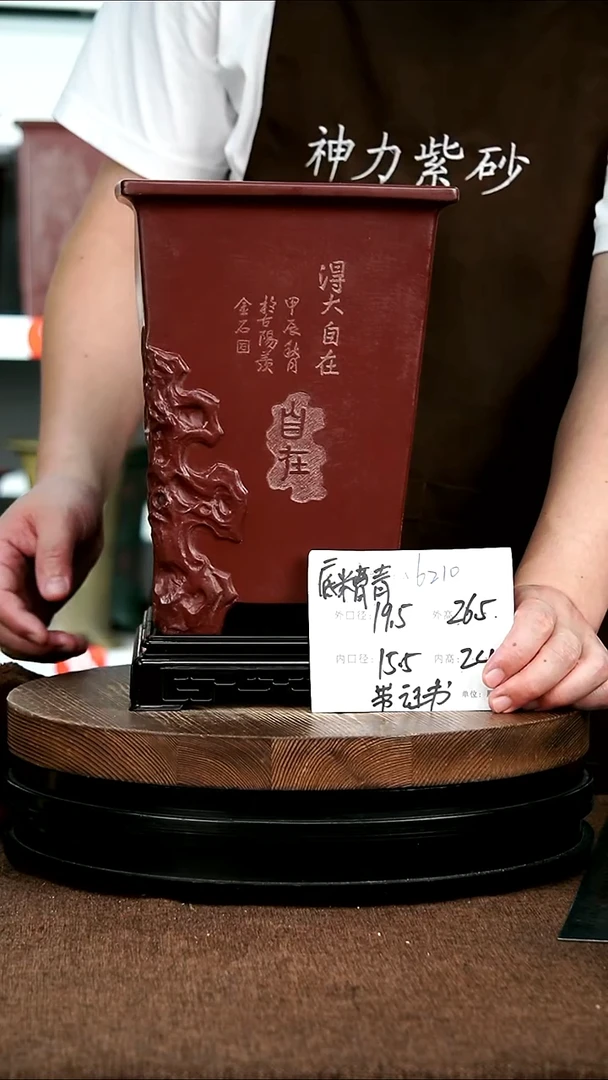 神力紫砂
得大自在
甲辰秋月
於古陽羨
金石
自在
底精青 6210
外口径: 19.5 外高: 26.5
内口径: 15.5 内高: 24
带证书 单位: